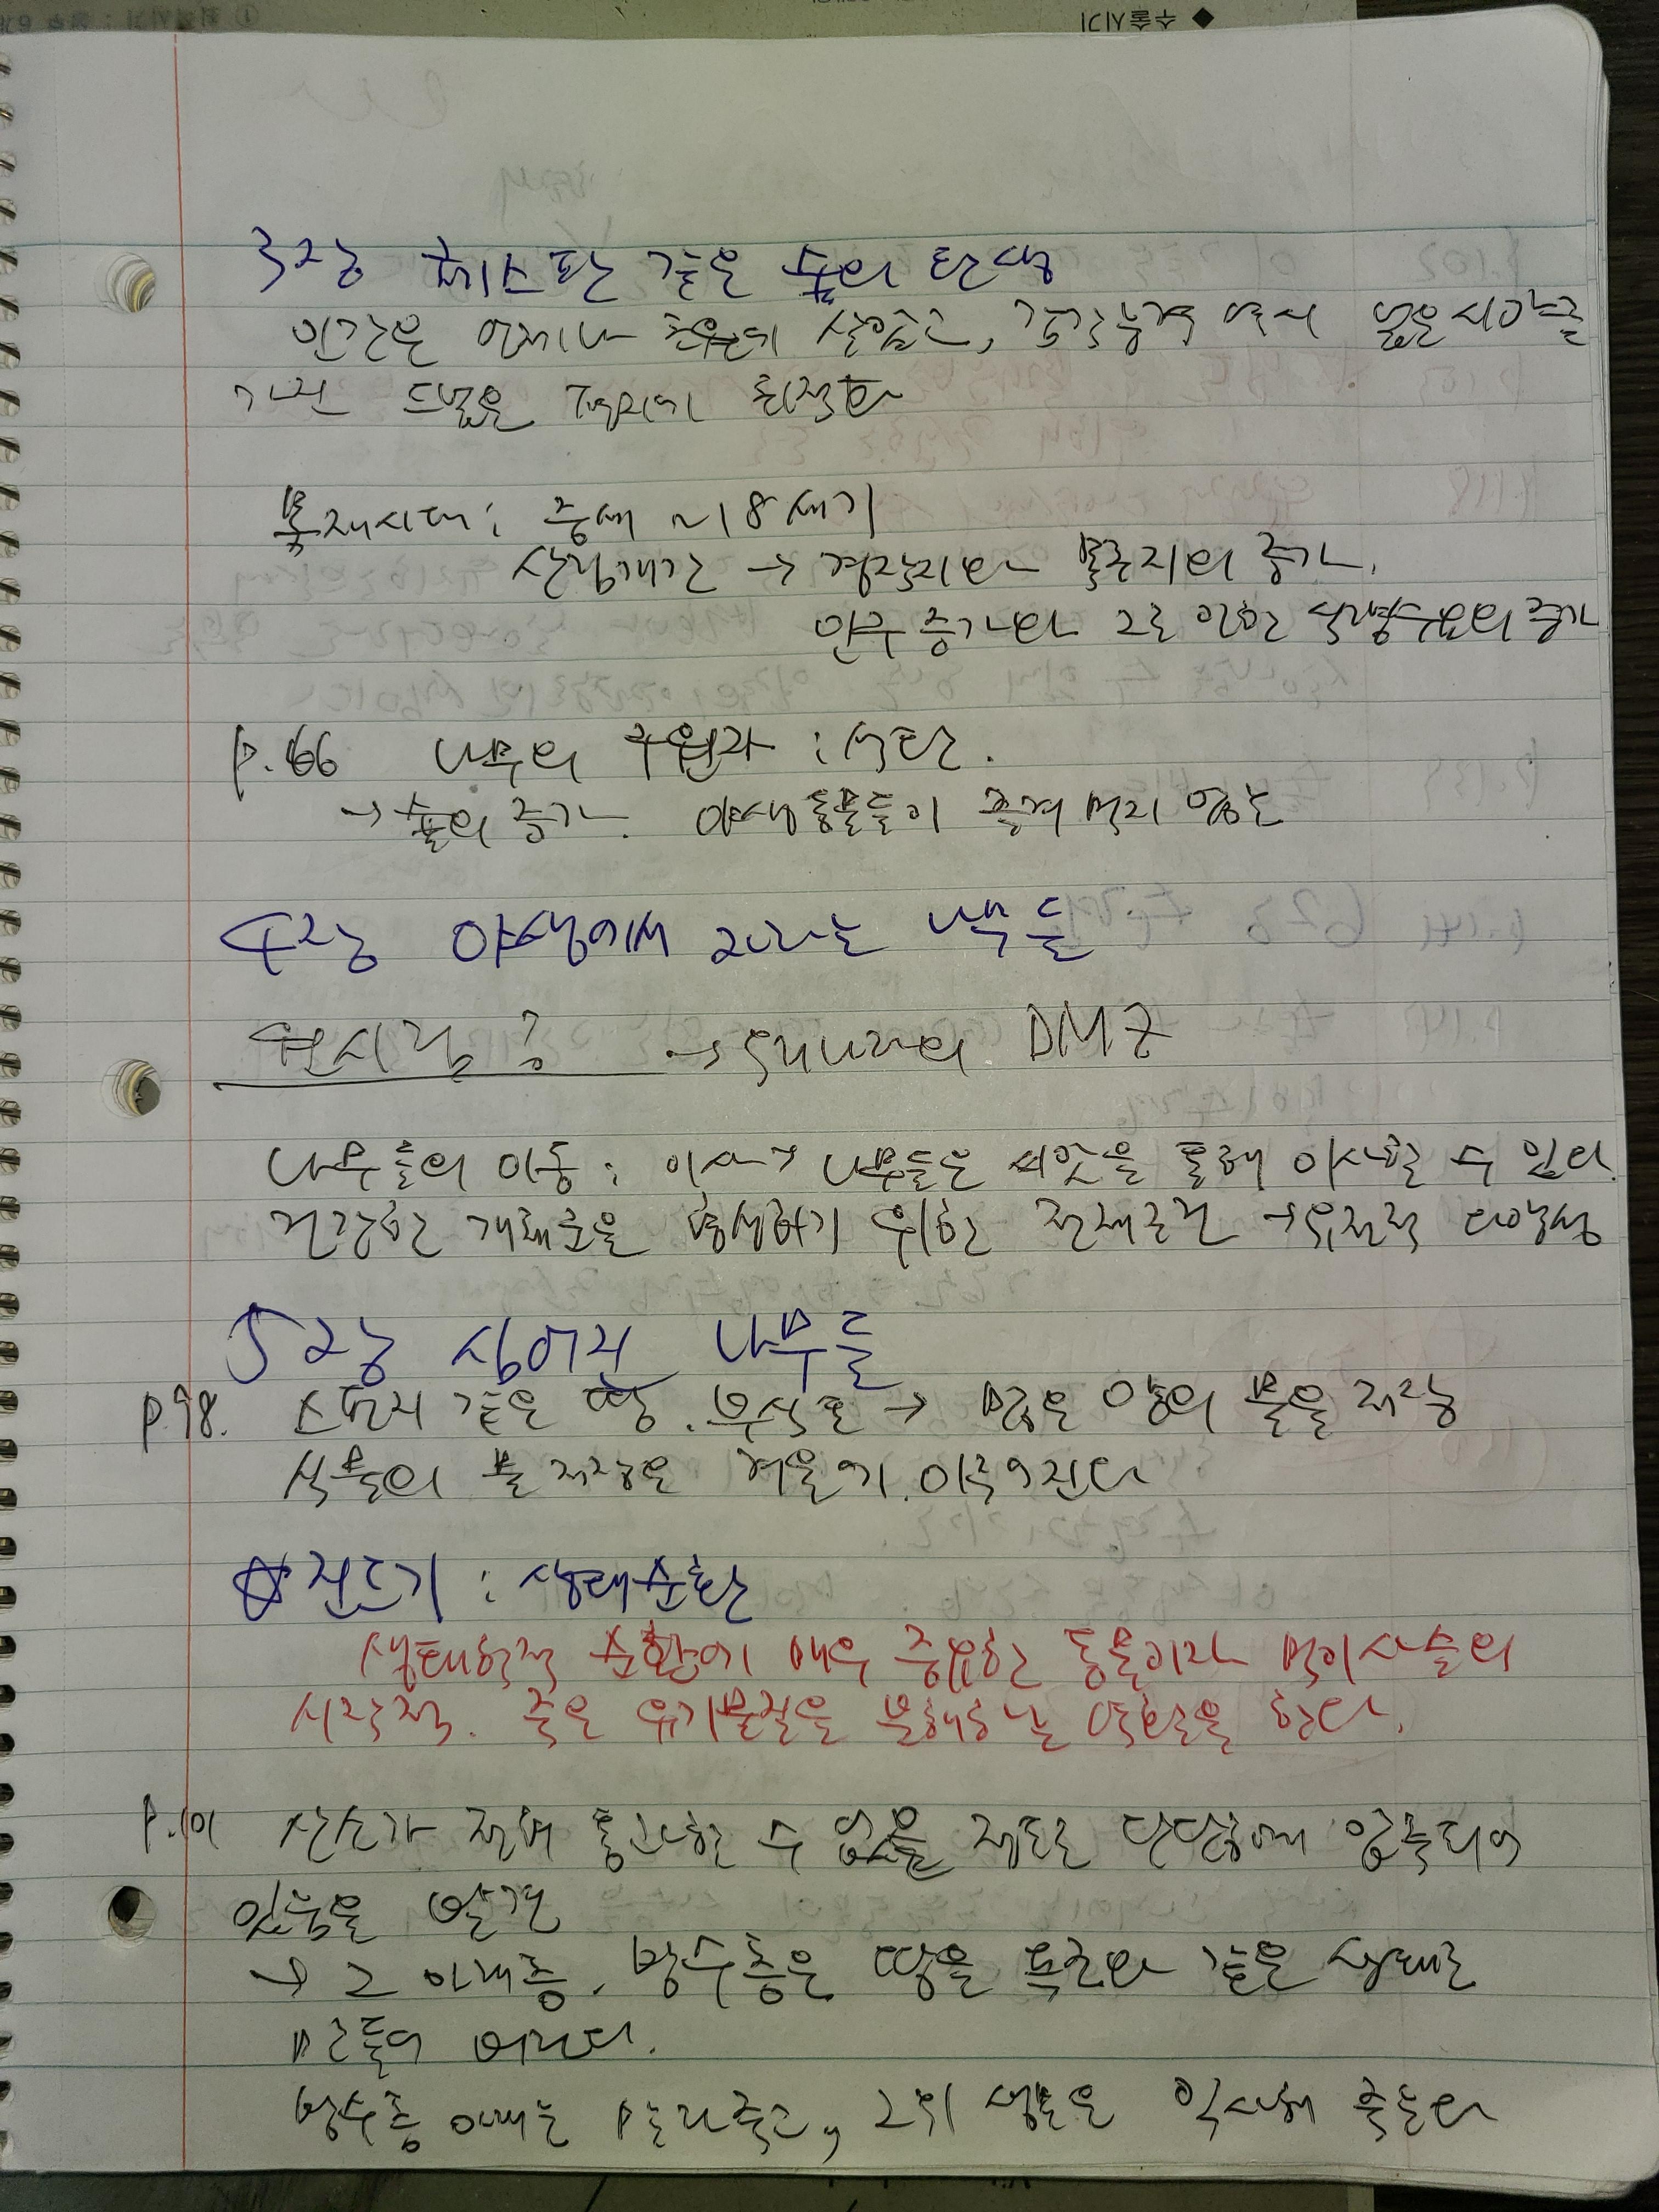 수술시기
3장 체스판 같은 숲의 탄생
인간은 언제나 초원에 살았고, 감각능력 역시 넓은 시야를
가진 드넓은 평지에 최적화
목재시대 : 중세 ~18세기
산림개간 → 경작지와 목초지의 증가.
인구 증가와 그로 인한 식량수요의 증가
p.66 나무의 구원자 : 석탄.
→ 숲의 증가. 야생동물들이 즐겨 먹지 않는
4장 야생에서 자라는 나무들
원시림? → 우리나라의 DMZ
나무들의 이동 : 이사→ 나무들은 씨앗을 통해 이사할 수 있다.
건강한 개체군을 형성하기 위한 전제조건 → 유전적 다양성
5장 심어진 나무들
p.98. 스펀지 같은 땅. 부식토 → 많은 양의 물을 저장
식물의 물 저장은 겨울에 이루어진다
☆진드기 : 생태순환
생태학적 순환에 매우 중요한 동물이자 먹이사슬의
시작점. 죽은 유기물질을 분해하는 역할을 한다.
p.101 산소가 전혀 통과할 수 없을 정도로 단단하게 압축되어
있음을 발견
→ 그 아래층. 방수층은 땅을 욕조와 같은 상태로
만들어 버린다.
방수층 아래는 말라죽고, 그 위 생물은 익사해 죽는다